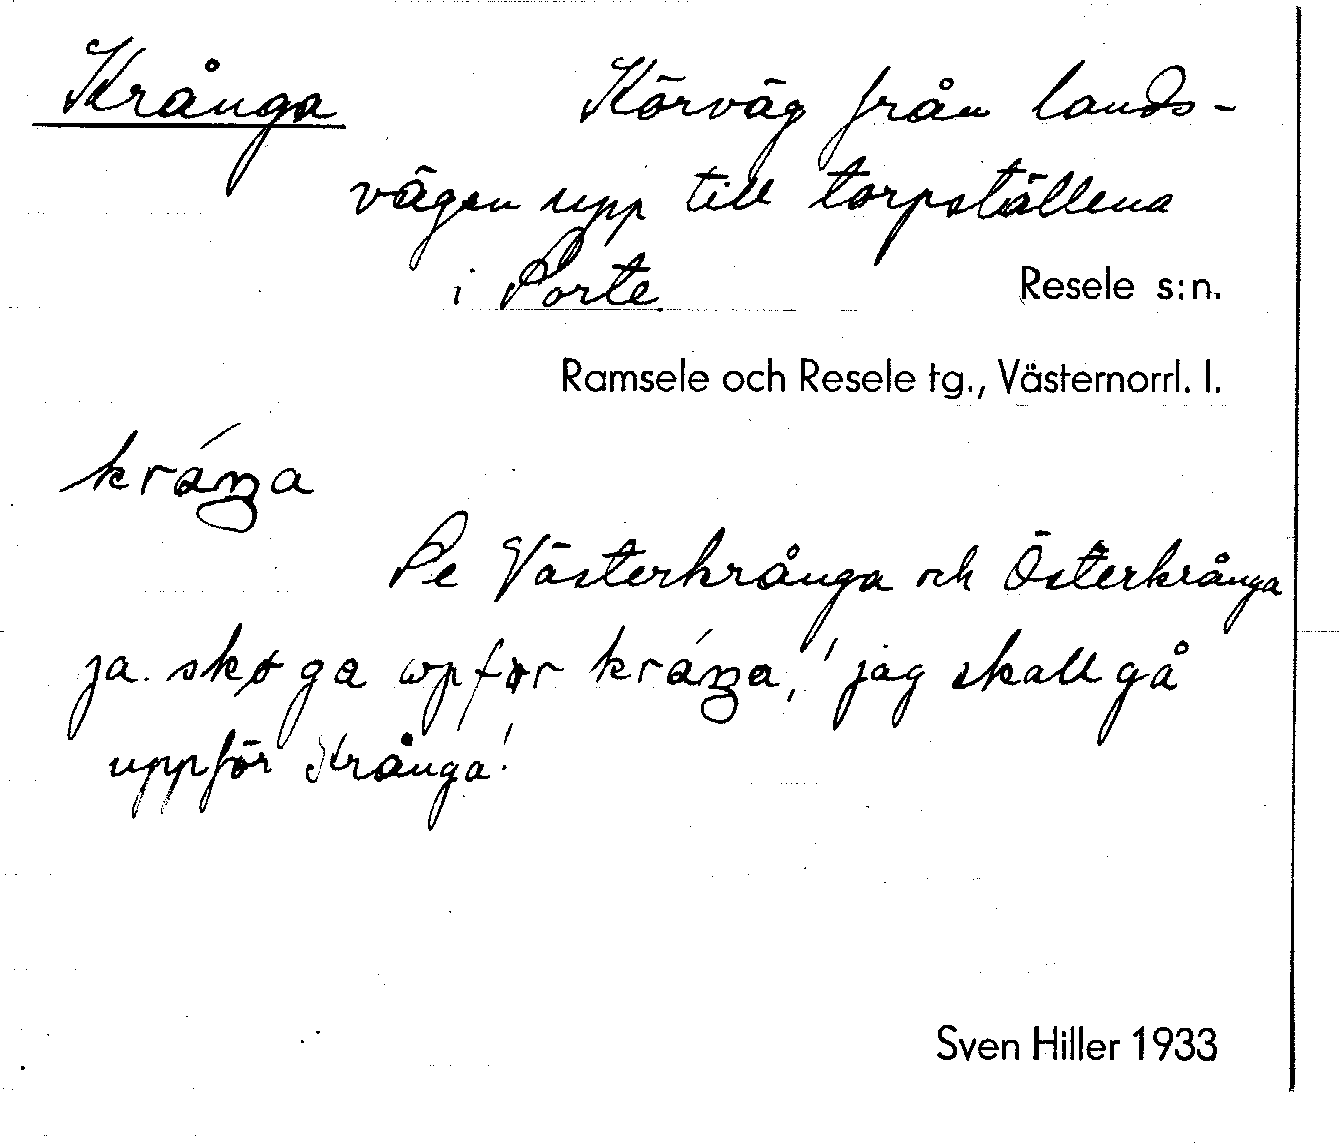 Krånga Körväg från lands-
vägen upp till torpställena
i Porte Resele s:n.
Ramsele och Resele tg., Västernorrl. l.
kráŋa
Pe Västerkrånga och Österkrånga
ja skø ga upfør kráŋa, 'jag skall gå
uppför Krånga'
Sven Hiller 1933